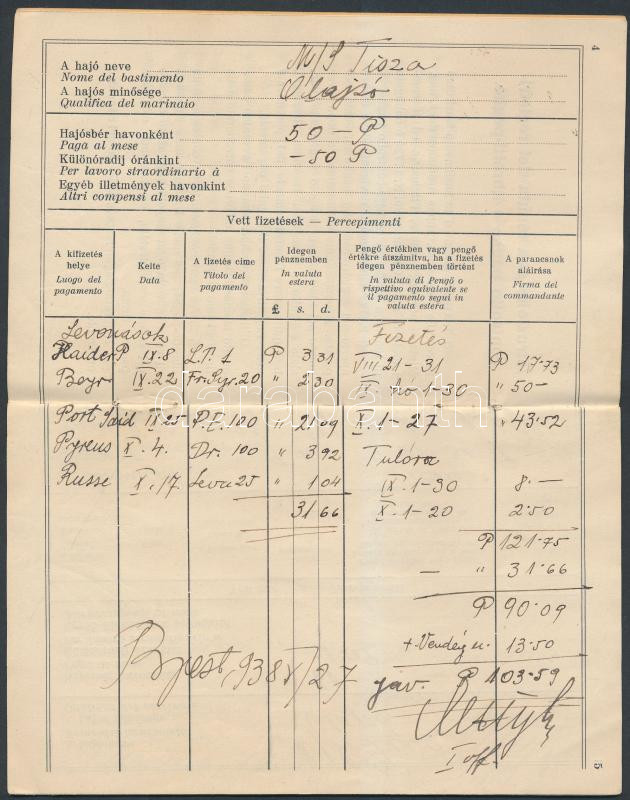 4
A hajó neve M/S Tisza
Nome del bastimento
A hajós minősége Olajzó
Qualifica del marinaio
Hajósbér havonként 50 — P
Paga al mese
Különóradij óránkint — 50 P
Per lavoro straordinario à
Egyéb illetmények havonkint
Altri compensi al mese
Vett fizetések — Percepimenti
A kifizetés helye
Luogo del pagamento
Kelte
Data
A fizetés cime
Titolo del pagamento
Idegen pénznemben
In valuta estera
£ s. d.
Pengő értékben vagy pengő értékre átszámítva, ha a fizetés idegen pénznemben történt
In valuta di Pengő o rispettivo equivalente se il pagamento segui in valuta estera
A parancsnok aláirása
Firma del commandante
Levonások Fizetés
Haider P IX. 8 LT. 1 P 3 31 VIII 21-31 P 17.73
Beyr. IX. 22 Fr. Syr. 20 " 2 30 IX hó 1-30 " 50—
Port Said IX 25 P.E. 100 " 21 09 X. 1-27 " 43.52
Pyreus X. 4. Dr. 100 " 3 92 Tulóra
Russe X. 17. Leva 25 " 1 04 IX. 1-30 8.—
31 66 X. 1-20 2.50
P 121.75
— " 31.66
P 90.09
+ Vendég u. 13.50
Bpest, 938 X/27 jav. P 103.59
I off.
5
darabanth